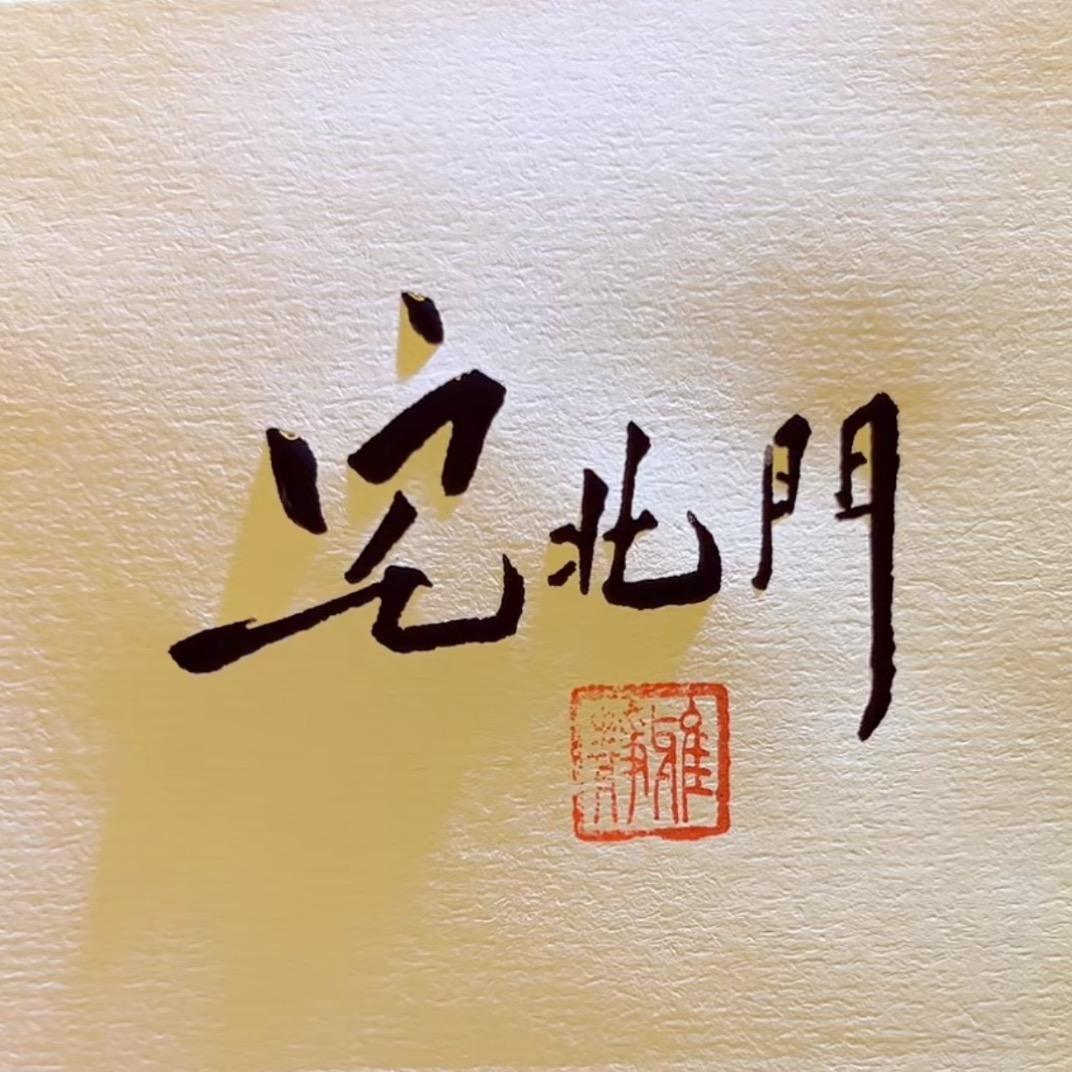 宅北門